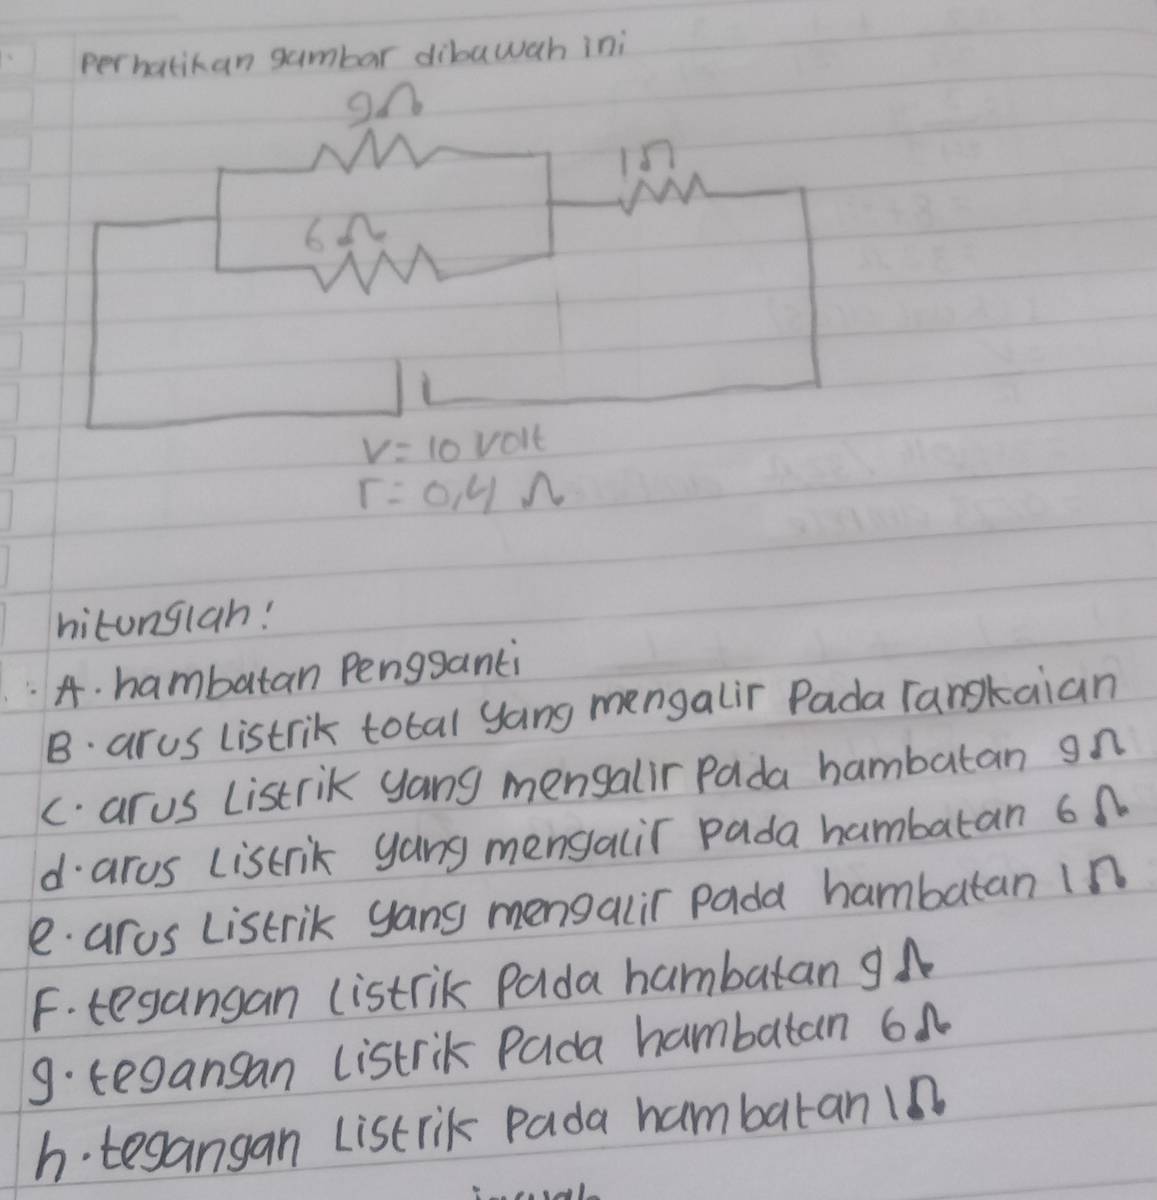 Perhatikan gambar dibawah ini
9Ω
1Ω
6Ω
V = 10 Volt
r = 0,4 Ω
hitunglah:
A. hambatan Pengganti
B. arus Listrik total yang mengalir Pada rangkaian
C. arus Listrik yang mengalir Pada hambatan 9Ω
d. arus Listrik yang mengalir Pada hambatan 6Ω
e. arus Listrik yang mengalir Pada hambatan 1Ω
F. tegangan Listrik Pada hambatan 9Ω
g. tegangan Listrik Pada hambatan 6Ω
h. tegangan Listrik Pada hambatan 1Ω